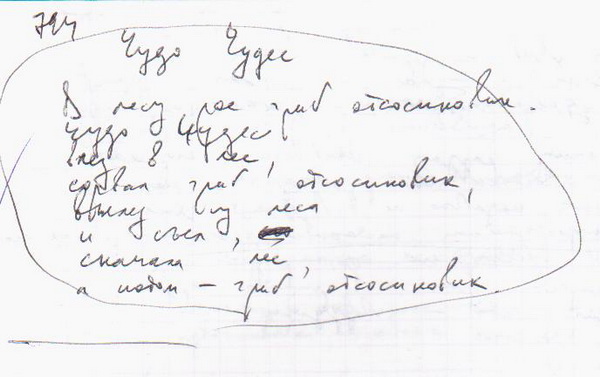 794
Чудо Чудес
В лесу рос гриб отсосиновик.
Чудо Чудес
в лес,
сорвал гриб, отсосиновик,
из леса
и съел,
сначала лес,
а потом — гриб, отсосиновик.